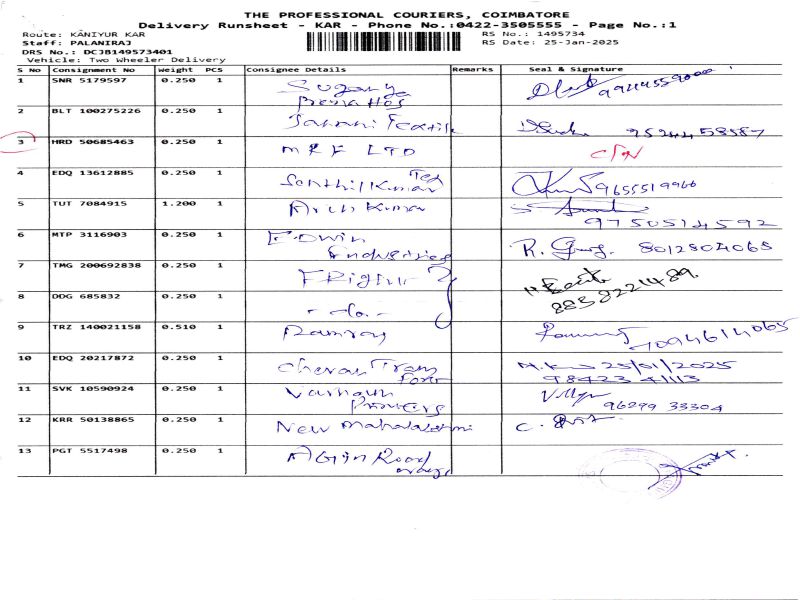 THE PROFESSIONAL COURIERS, COIMBATORE
Delivery Runsheet - KAR - Phone No.:0422-3505555 - Page No.:1
Route: KANIYUR KAR RS No.: 1495734
Staff: PALANIRAJ RS Date: 25-Jan-2025
DRS No.: DCJB149573401
Vehicle: Two Wheeler Delivery
S No Consignment No Weight PCS Consignee Details Remarks Seal & Signature
1 SNR 5179597 0.250 1
2 BLT 100275226 0.250 1
3 HRD 50685463 0.250 1 MRF LTD
4 EDQ 13612885 0.250 1 Senthil Kumar Tex 9655519966
5 TUT 7084915 1.200 1 Arun Kumar 9750514592
6 MTP 3116903 0.250 1 Edwin Industries R. 8012804065
7 TMG 200692838 0.250 1 8838221489
8 DDG 685832 0.250 1 - do -
9 TRZ 140021158 0.510 1 Ramraj 7094614065
10 EDQ 20217872 0.250 1 Cheran Trans port 25/01/2025
98423 41113
11 SVK 10590924 0.250 1 96299 33304
12 KRR 50138865 0.250 1 New Mahalakshmi C.
13 PGT 5517498 0.250 1